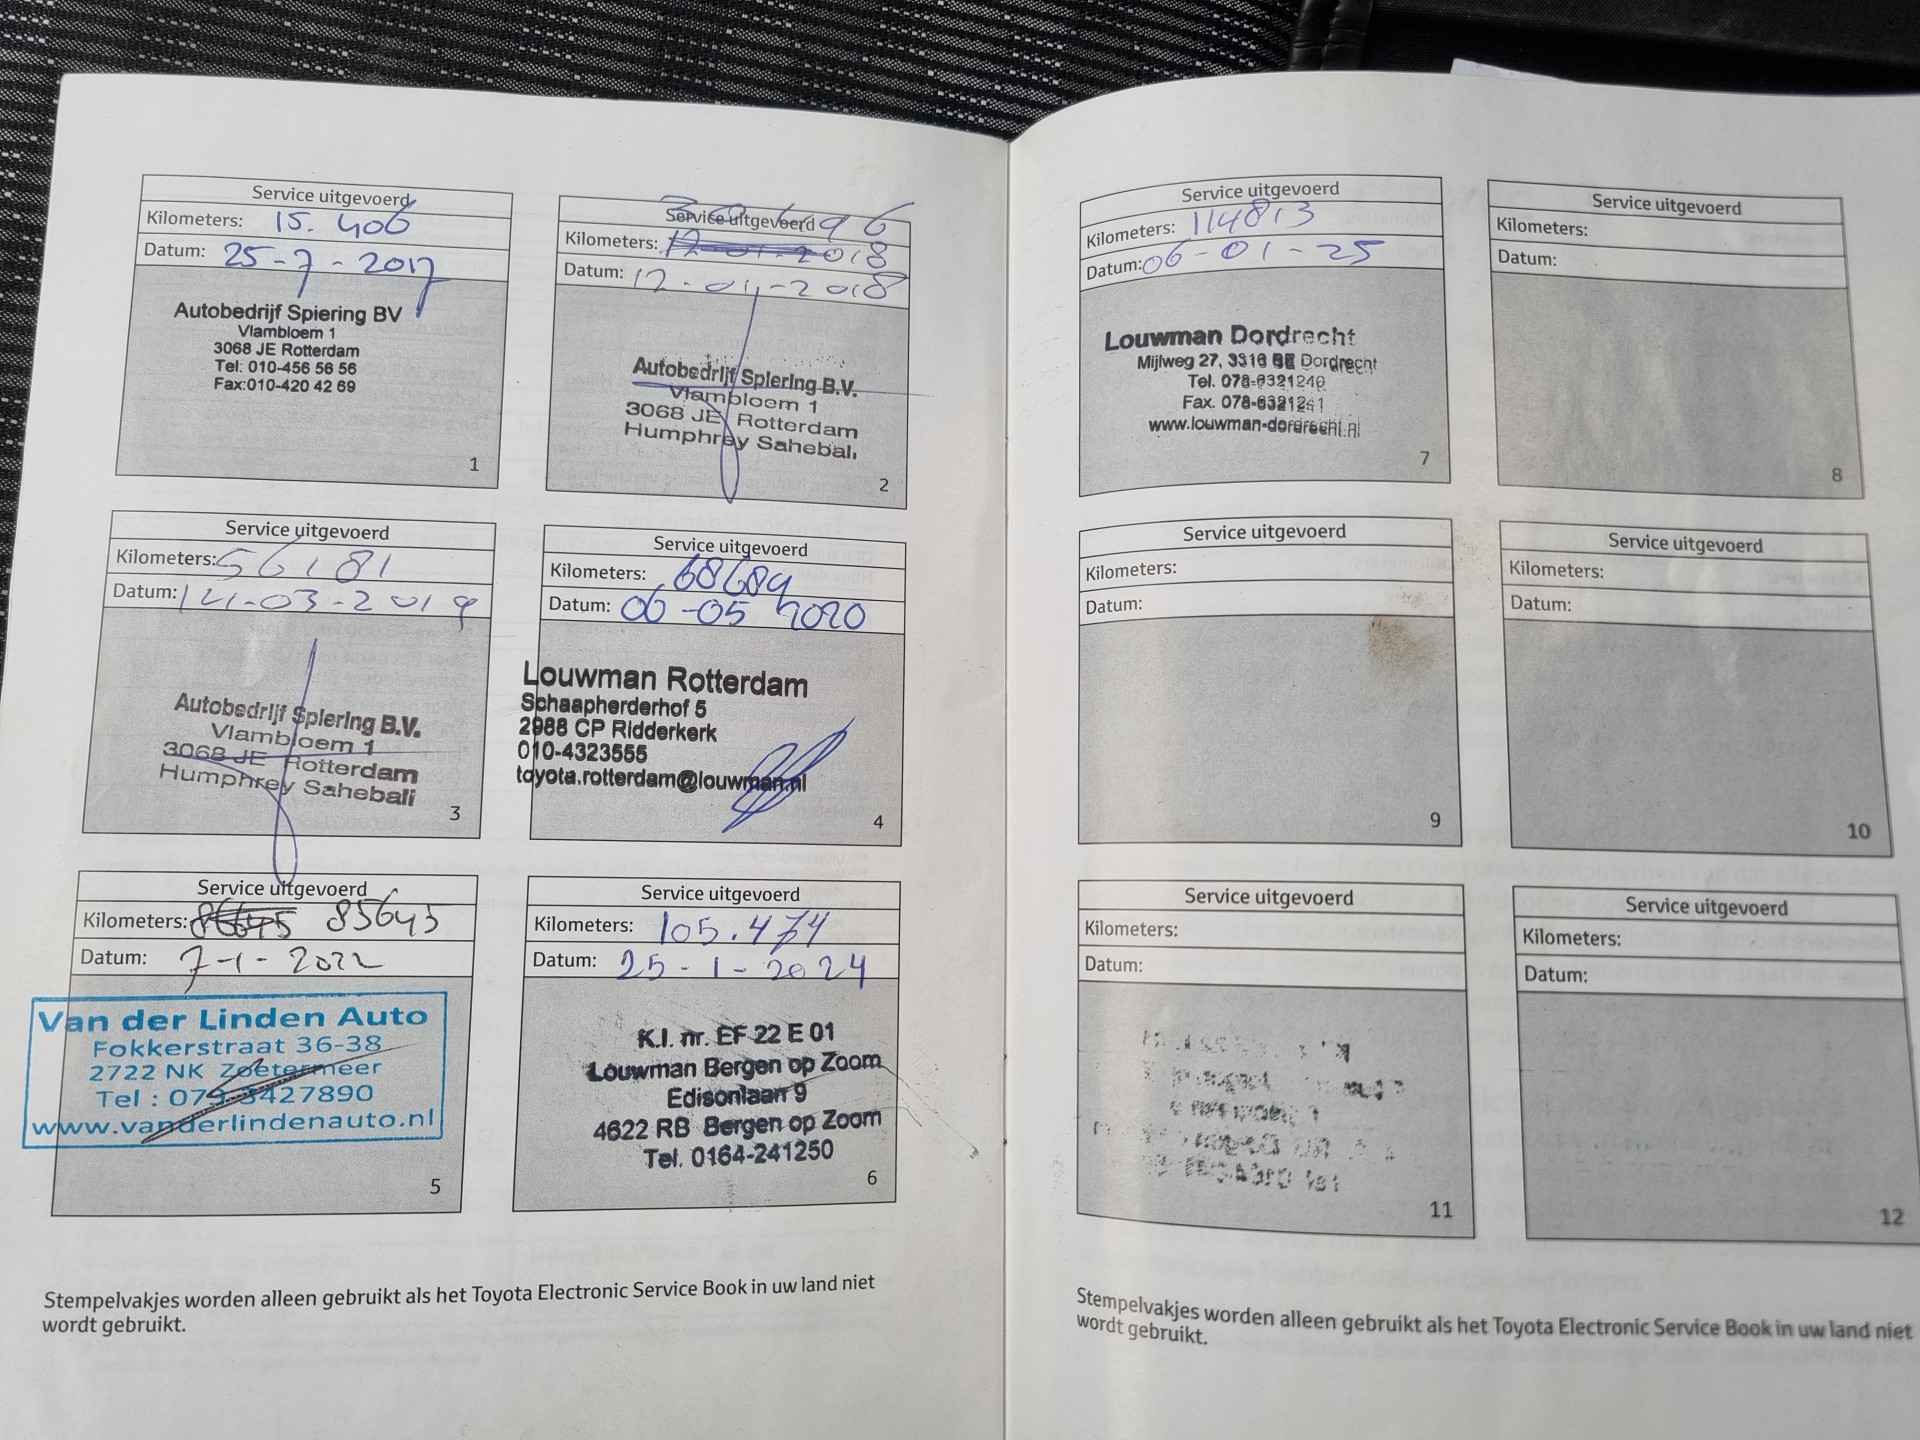 Service uitgevoerd
Kilometers: 15.406
Datum: 25-7-2017
Autobedrijf Spiering BV
Vlambloem 1
3068 JE Rotterdam
Tel: 010-456 56 56
Fax:010-420 42 69
1
Service uitgevoerd
Kilometers: 12-01-2018
Datum: 12-01-2018
Autobedrijf Spiering B.V.
Vlambloem 1
3068 JE Rotterdam
Humphrey Sahebali
2
Service uitgevoerd
Kilometers: 56181
Datum: 14-03-2019
Autobedrijf Spiering B.V.
Vlambloem 1
3068 JE Rotterdam
Humphrey Sahebali
3
Service uitgevoerd
Kilometers: 68689
Datum: 06-05 2020
Louwman Rotterdam
Schaapherderhof 5
2988 CP Ridderkerk
010-4323555
toyota.rotterdam@louwman.nl
4
Service uitgevoerd
Kilometers: 85645
Datum: 7-1-2022
Van der Linden Auto
Fokkerstraat 36-38
2722 NK Zoetermeer
Tel : 079-3427890
www.vanderlindenauto.nl
5
Service uitgevoerd
Kilometers: 105.474
Datum: 25-1-2024
K.I. nr. EF 22 E 01
Louwman Bergen op Zoom
Edisonlaan 9
4622 RB Bergen op Zoom
Tel. 0164-241250
6
Stempelvakjes worden alleen gebruikt als het Toyota Electronic Service Book in uw land niet
wordt gebruikt.
Service uitgevoerd
Kilometers: 114813
Datum: 06-01-25
Louwman Dordrecht
Mijlweg 27, 3316 BE Dordrecht
Tel. 078-6321240
Fax. 078-6321241
www.louwman-dordrecht.nl
7
Service uitgevoerd
Kilometers:
Datum:
8
Service uitgevoerd
Kilometers:
Datum:
9
Service uitgevoerd
Kilometers:
Datum:
10
Service uitgevoerd
Kilometers:
Datum:
11
Service uitgevoerd
Kilometers:
Datum:
12
Stempelvakjes worden alleen gebruikt als het Toyota Electronic Service Book in uw land niet
wordt gebruikt.